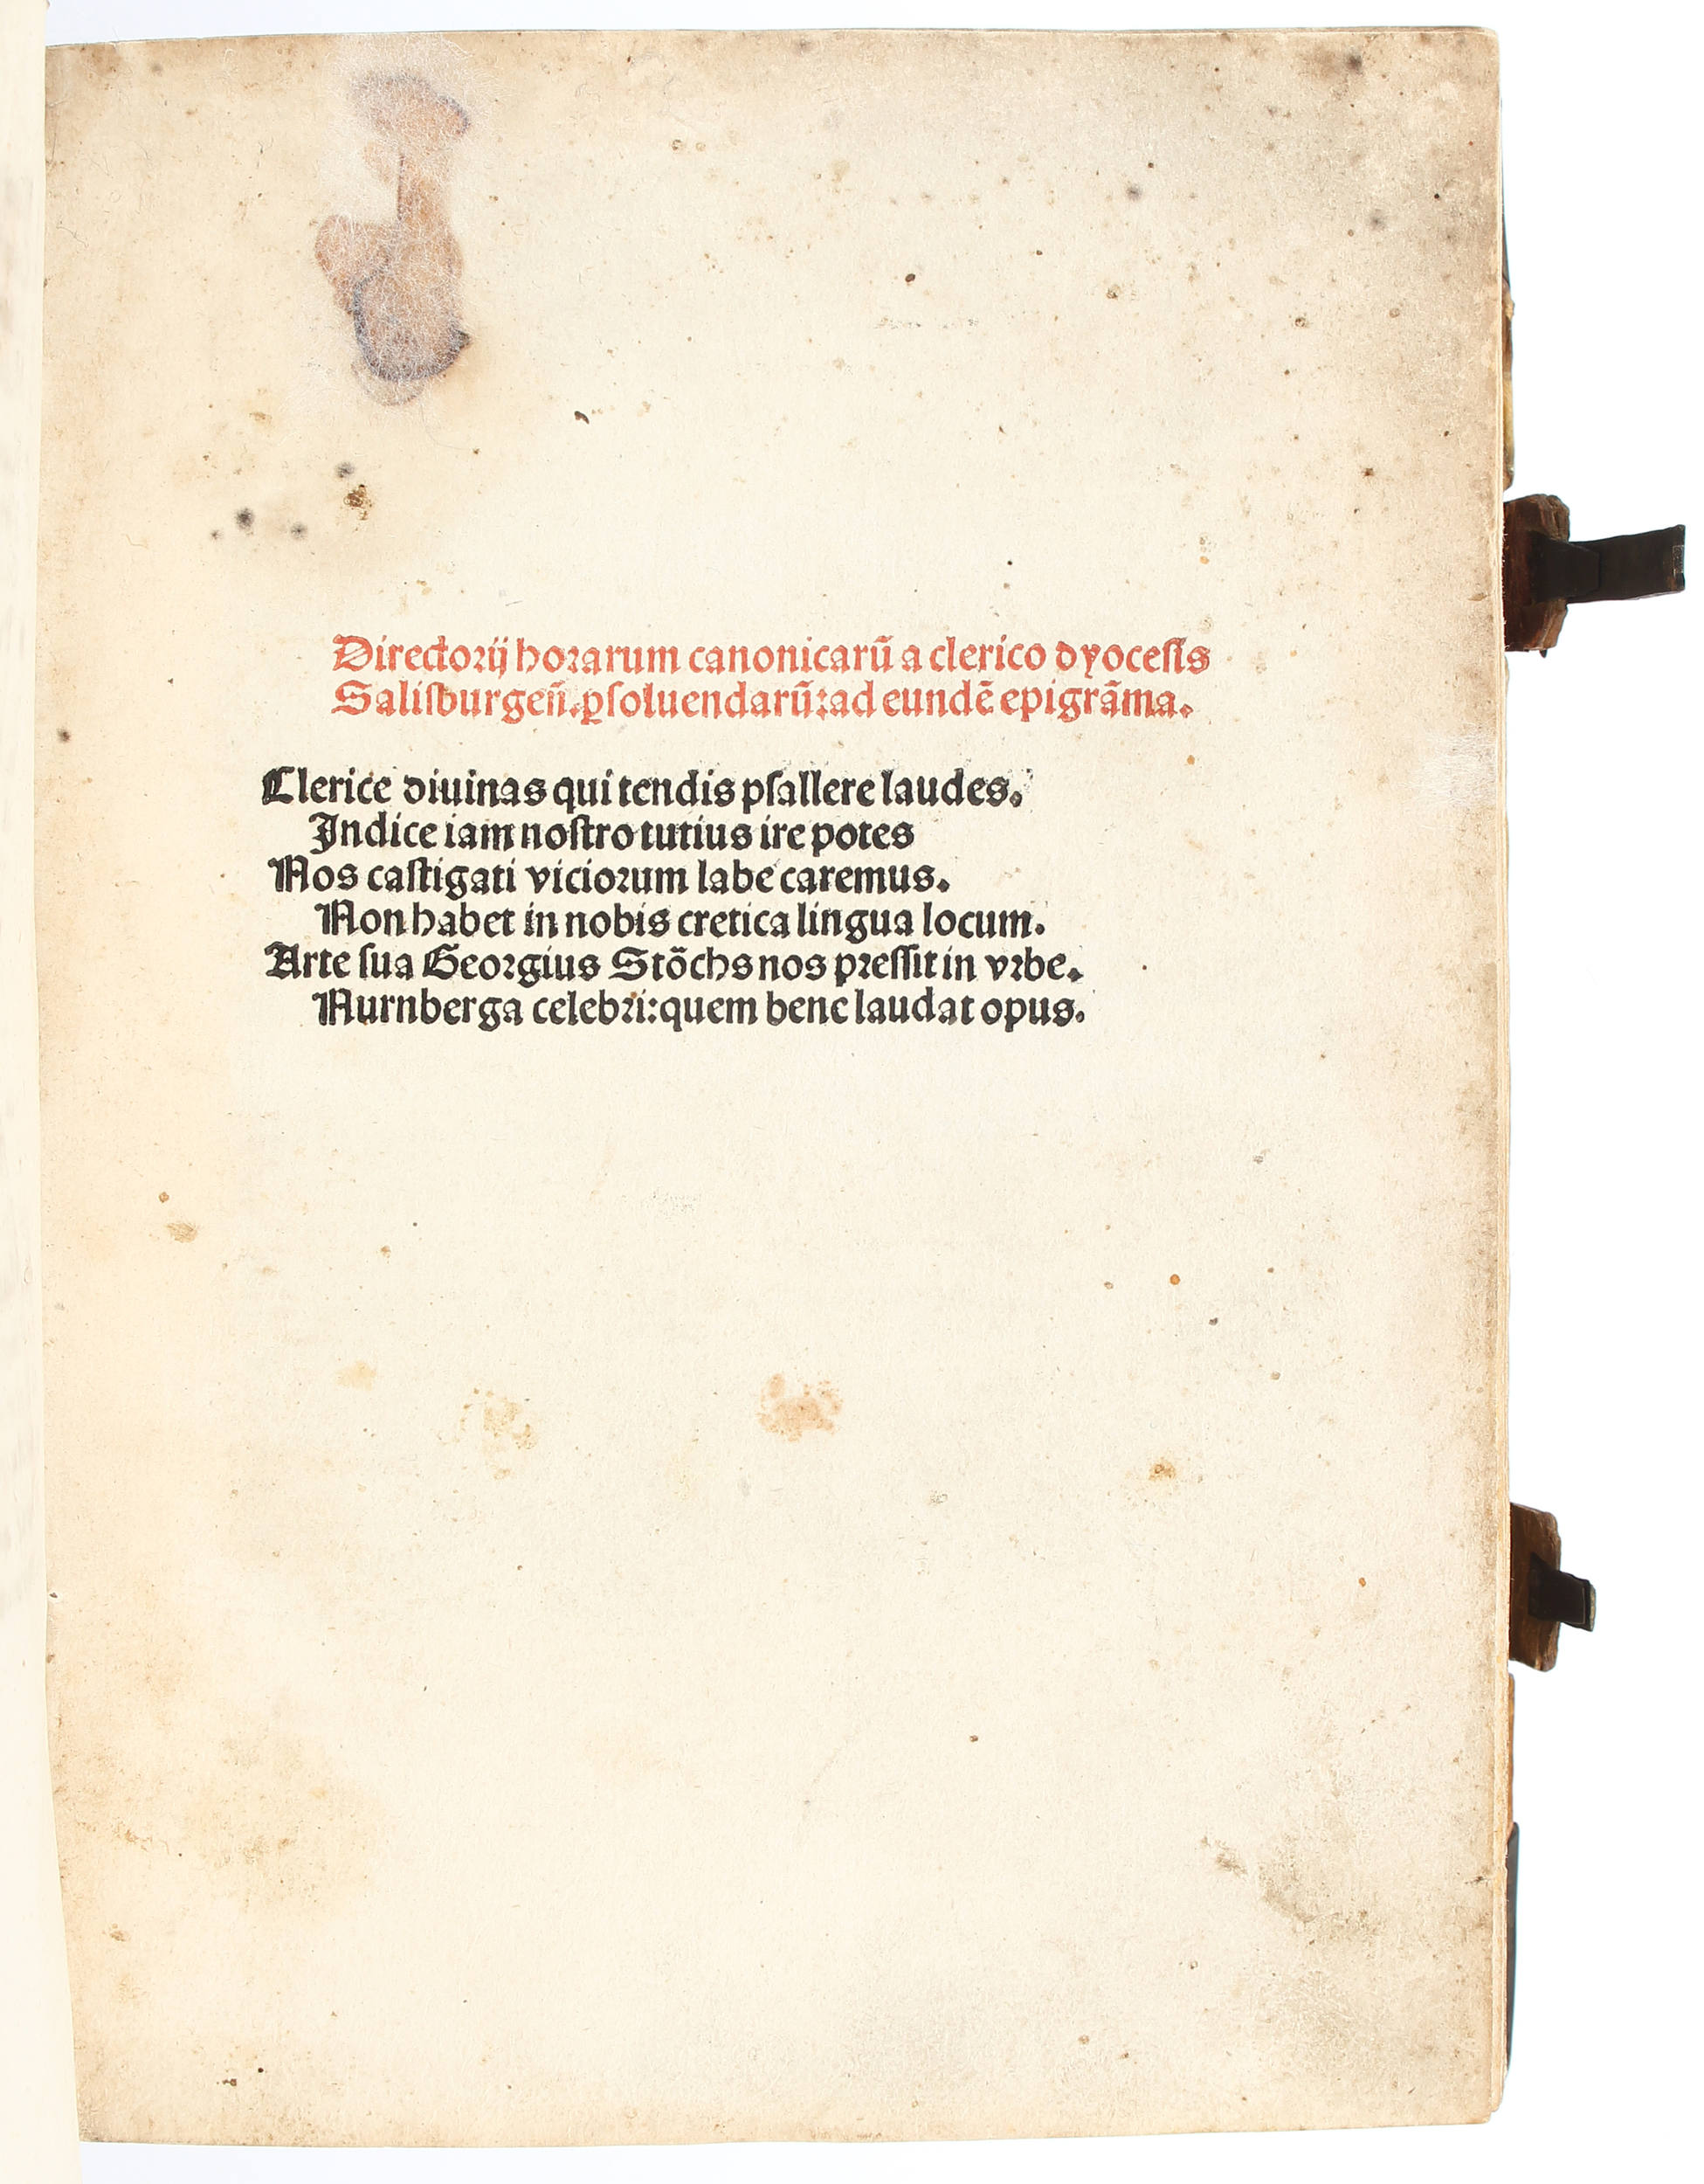 Directorij horarum canonicarũ a clerico dyocesis
Salisburgen̄.ꝑsoluendarũ:ad eundẽ epigrãma.
Clerice diuinas qui tendis psallere laudes.
Indice iam nostro tutius ire potes
Nos castigati viciorum labe caremus.
Non habet in nobis cretica lingua locum.
Arte sua Georgius Stõchs nos pressit in vrbe.
Nurnberga celebri:quem bene laudat opus.